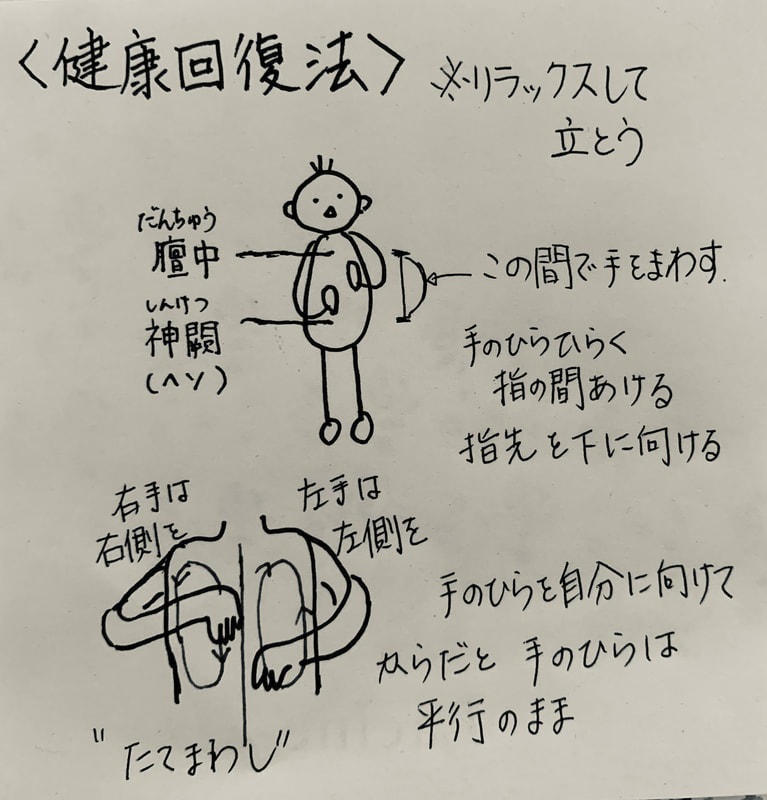 〈健康回復法〉
※リラックスして
立とう
だんちゅう
膻中
しんけつ
神闕
(ヘソ)
この間で手をまわす.
手のひらひらく
指の間あける
指先を下に向ける
右手は
右側を
左手は
左側を
手のひらを自分に向けて
からだと手のひらは
平行のまま
"たてまわし"